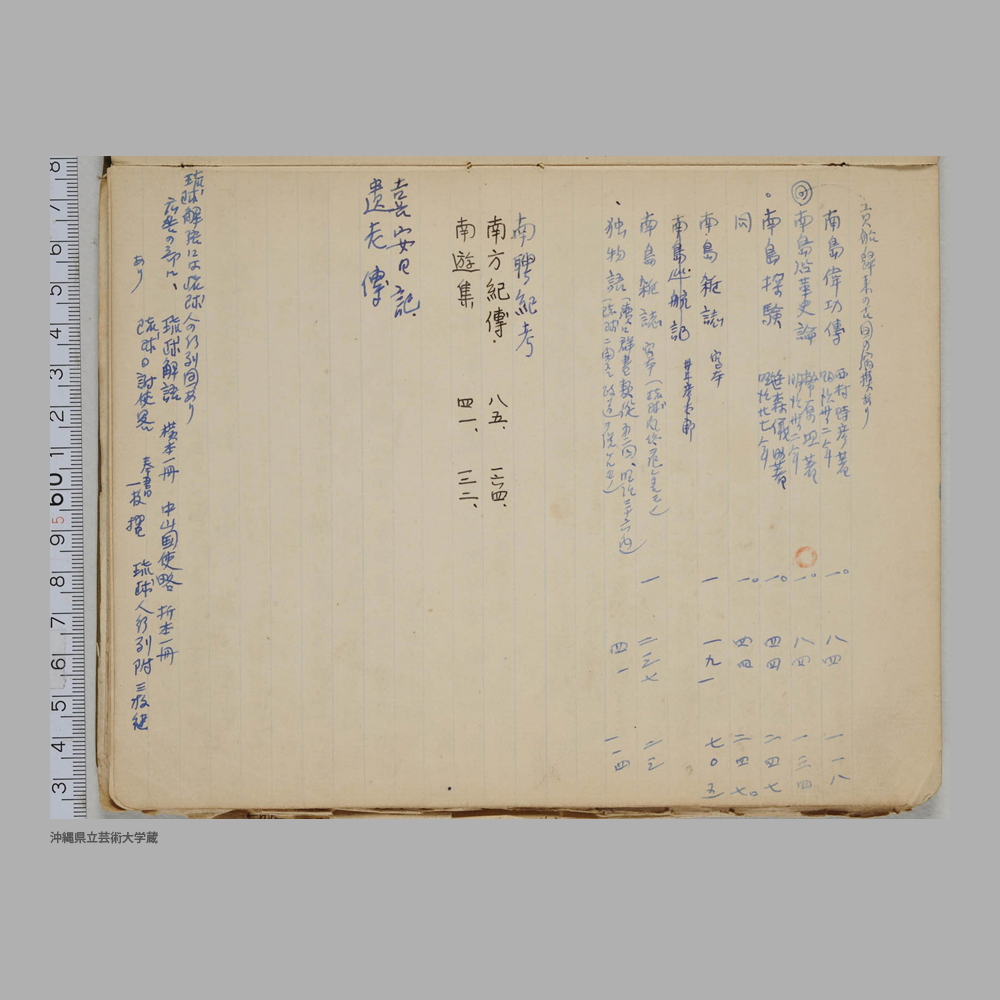 貢船帰来の古図の模様あり
南島偉功傳 西村時彦著 明治卅二年 一。 八四 一一八
南島沿革史論 幣原坦著 明治卅二年 一。 八四 一三四
南島探験 笹森儀助著 明治廿七年 一。 四四 二四七
同 一。 四四 二四七。
南島雑誌 寫本 一 一九一 七〇五
南島巡航記 井上彦太郎
南島雑誌 寫本 一 二三七 二三
独物語 四一 一一四
南聘紀考
南方紀傳. 八五、 三四、
南遊集 四一、 三二、
喜安日記
遺老傳
琉球解語には琉球人の行列図あり
の部に、 琉球解語 横本一冊 中山国使略 折本一冊
あり 琉球日討使略 奉書一枚摺 琉球人行列附 三枚継
8 7 6 5 4 3 2 1 60 9 8 7 6 5 4 3
沖縄県立芸術大学蔵